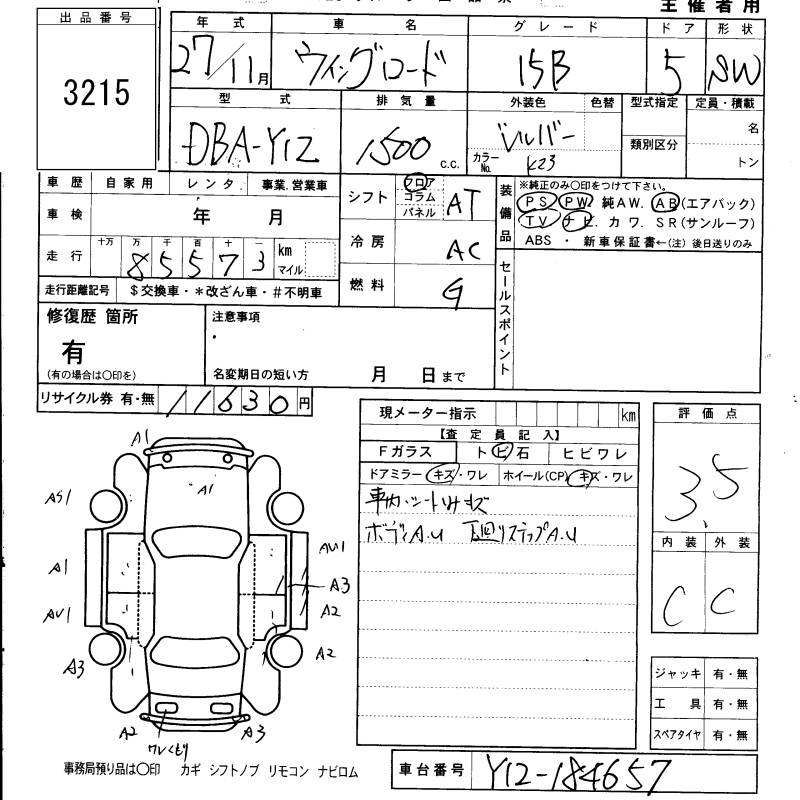 主催者用
出品番号 年式 車名 グレード ドア 形状
3215 27/11月 ウィングロード 15B 5 SW
型式 排気量 外装色 色替 型式指定 定員・積載
DBA-Y12 1500 c.c. シルバー 類別区分 名
カラーNo. K23 トン
車歴 自家用 レンタ 事業.営業車 シフト フロア コラム パネル AT 装備品 ※純正のみ○印をつけて下さい。
PS PW 純AW. AB(エアバック)
車検 年 月 TV ナビ. カワ. SR(サンルーフ)
冷房 AC ABS ・ 新車保証書←(注) 後日送りのみ
走行 十万 万 千 百 十 一 km マイル
85573
セールスポイント
走行距離記号 $交換車・*改ざん車・#不明車 燃料 G
修復歴 箇所 注意事項
有
(有の場合は○印を) 名変期日の短い方 月 日まで
リサイクル券 有・無 11630円
現メーター指示 km 評価点
【査定員記入】 3.5
Fガラス トビ石 ヒビワレ
ドアミラー キズ・ワレ ホイール(CP) キズ・ワレ
ボディA.U 下回リステップA.U
内装 外装
C C
A1
A1
AS1
A1 AU1
A3
AU1 A2
A3 A2
A2 A3
ワレくもり
ジャッキ 有・無
工具 有・無
スペアタイヤ 有・無
事務局預り品は○印 カギ シフトノブ リモコン ナビロム
車台番号 Y12-184657